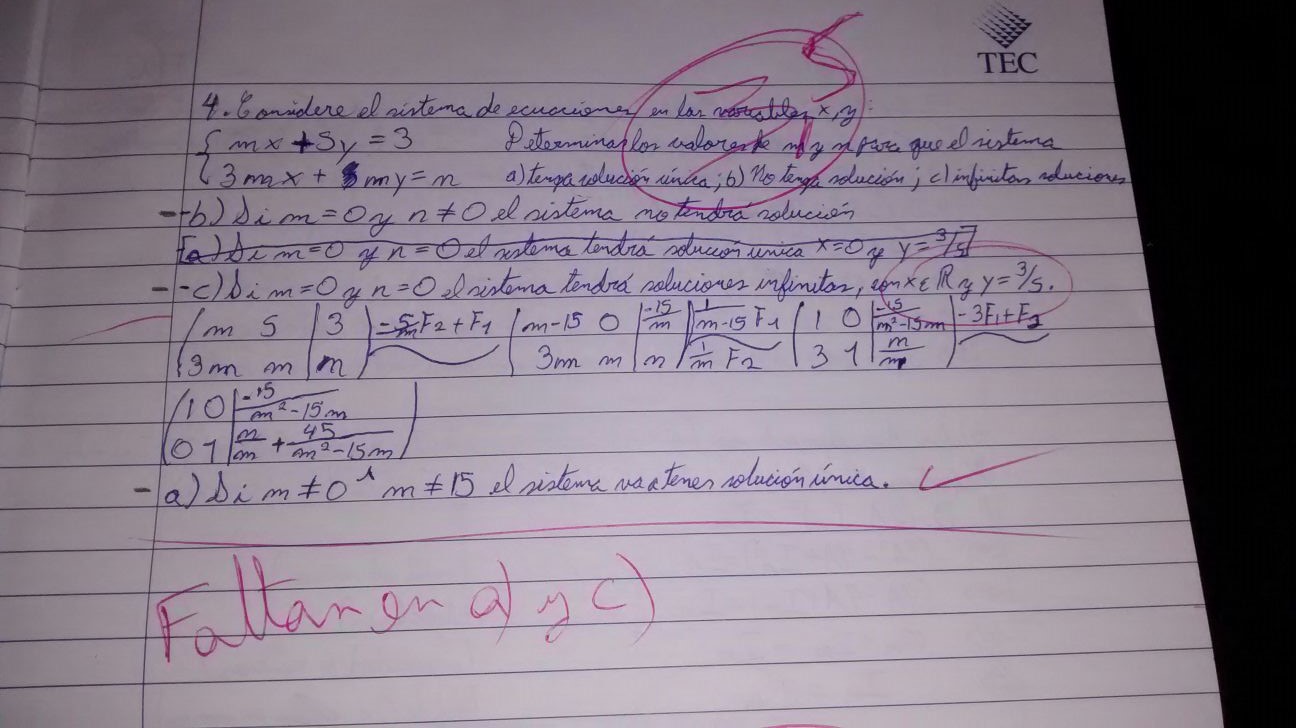 TEC
4. Considere el sistema de ecuaciones en las variables x, y:
{ mx + 5y = 3 Determinar los valores de m y n para que el sistema
{ 3mx + my = n a) tenga solución única; b) No tenga solución; c) infinitas soluciones
- -b) Si m = 0 y n ≠ 0 el sistema no tendrá solución
[a) Si m = 0 y n = 0 el sistema tendrá solución única x = 0 y y = 3/5]
- -c) Si m = 0 y n = 0 el sistema tendrá soluciones infinitas, con x ∈ ℝ y y = 3/5.
( m 5 | 3 ) -5/m F2 + F1 ( m-15 0 | -15/m ) 1/m-15 F1 ( 1 0 | -15/m²-15m ) -3F1 + F2
( 3m m | n ) ( 3m m | n ) 1/m F2 ( 3 1 | n/m )
( 1 0 | -15/m²-15m )
( 0 1 | n/m + 45/m²-15m )
- a) Si m ≠ 0 ∧ m ≠ 15 el sistema va a tener solución única.
Faltan en a) y c)